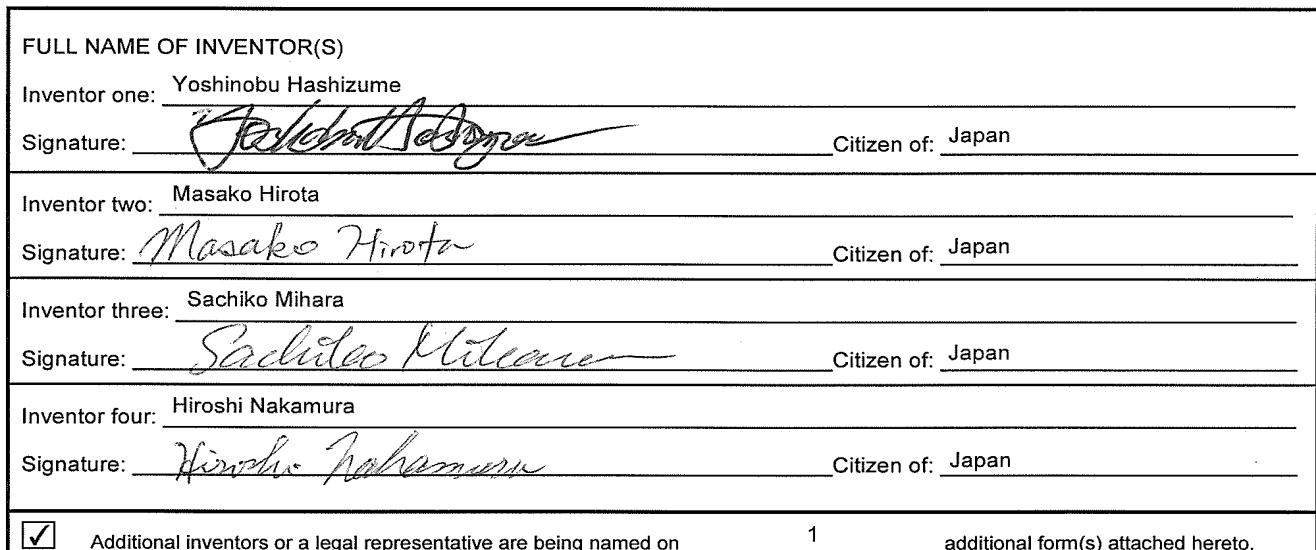 FULL NAME OF INVENTOR(S)
Inventor one: Yoshinobu Hashizume
Signature: Yoshinobu Hashizume Citizen of: Japan
Inventor two: Masako Hirota
Signature: Masako Hirota Citizen of: Japan
Inventor three: Sachiko Mihara
Signature: Sachiko Mihara Citizen of: Japan
Inventor four: Hiroshi Nakamura
Signature: Hiroshi Nakamura Citizen of: Japan
☑ Additional inventors or a legal representative are being named on 1 additional form(s) attached hereto.